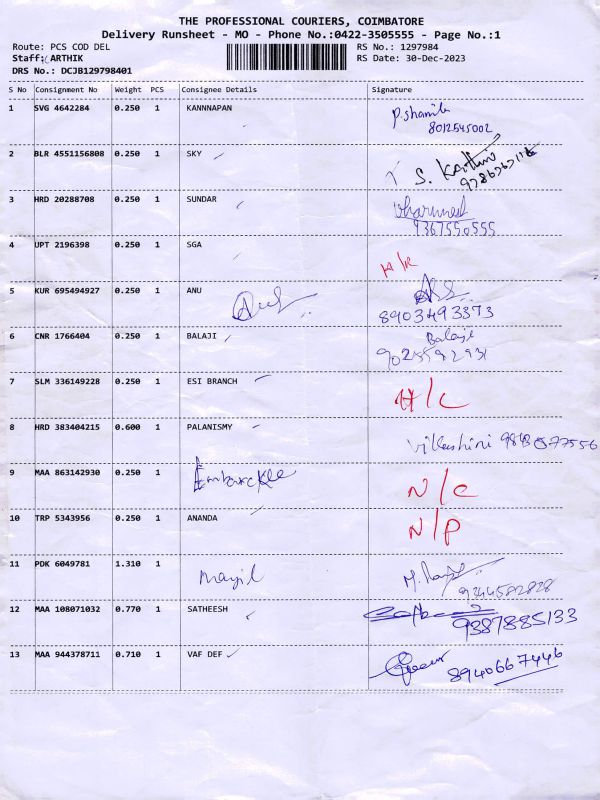 THE PROFESSIONAL COURIERS, COIMBATORE
Delivery Runsheet - MO - Phone No.:0422-3505555 - Page No.:1
Route: PCS COD DEL RS No.: 1297984
Staff: ARTHIK RS Date: 30-Dec-2023
DRS No.: DCJB129798401
S No Consignment No Weight PCS Consignee Details Signature
1 SVG 4642284 0.250 1 KANNNAPAN
8012545002
2 BLR 4551156808 0.250 1 SKY S.
3 HRD 20288708 0.250 1 SUNDAR
9367550555
4 UPT 2196398 0.250 1 SGA
5 KUR 695494927 0.250 1 ANU
8903493373
6 CNR 1766404 0.250 1 BALAJI Balaji
7 SLM 336149228 0.250 1 ESI BRANCH
8 HRD 383404215 0.600 1 PALANISMY
9 MAA 863142930 0.250 1 N/C
10 TRP 5343956 0.250 1 ANANDA N/P
11 PDK 6049781 1.310 1 Mayil M.
9344582828
12 MAA 108071032 0.770 1 SATHEESH 9387885133
13 MAA 944378711 0.710 1 VAF DEF 8940667446